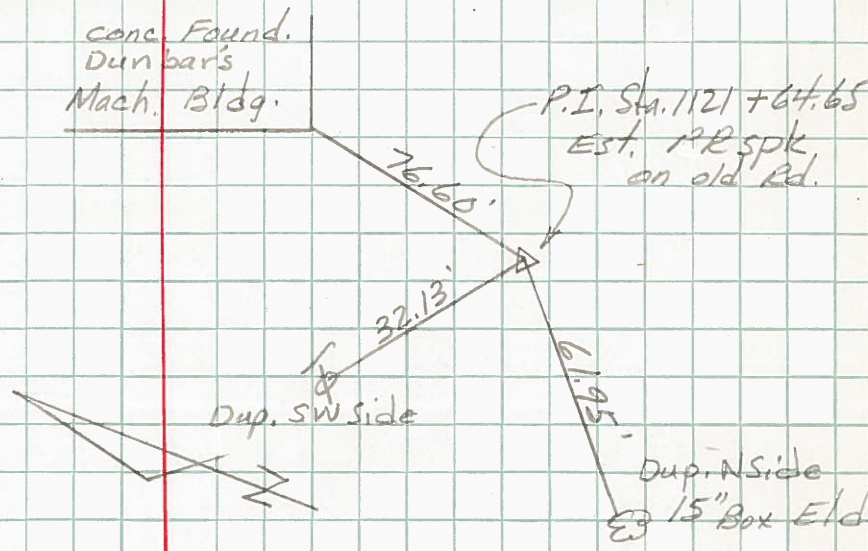 Conc. Found.
Dunbar's
Mach. Bldg.
P.I. Sta. 1121 + 64.65
Est. RR spk
on old Rd.
76.60'
32.13'
61.95'
Dup. SW Side
N
Dup. N Side
15" Box Eld